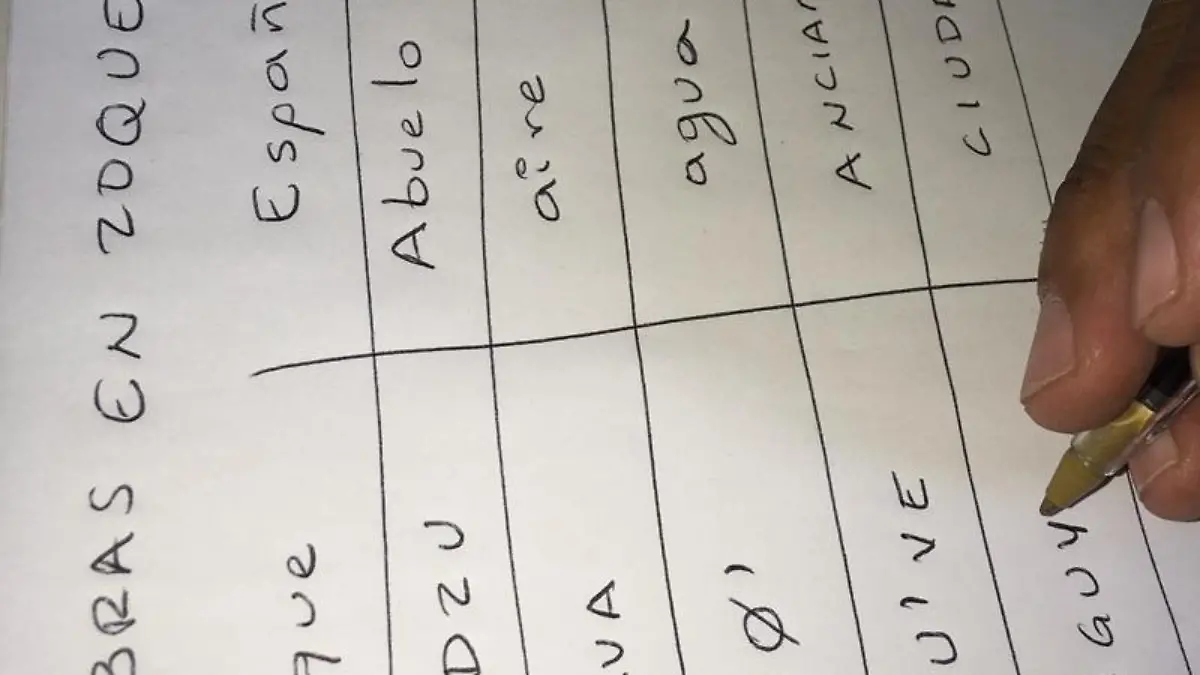 BRAS EN ZOQUE
que Españ
DZU Abuelo
VA aire
Ø' agua
UIVE ANCIAN
GUY CIUD